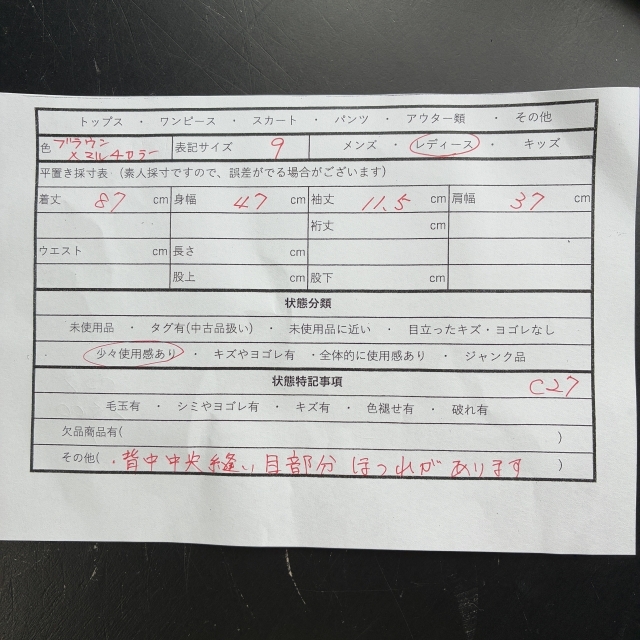 トップス ・ ワンピース ・ スカート ・ パンツ ・ アウター類 ・ その他
色 ブラウン×マルチカラー 表記サイズ 9 メンズ ・ レディース ・ キッズ
平置き採寸表 (素人採寸ですので、誤差がでる場合がございます)
着丈 87 cm 身幅 47 cm 袖丈 11.5 cm 肩幅 37 cm
裄丈 cm
ウエスト cm 長さ cm
股上 cm 股下 cm
状態分類
未使用品 ・ タグ有(中古品扱い) ・ 未使用品に近い ・ 目立ったキズ・ヨゴレなし
少々使用感あり ・ キズやヨゴレ有 ・全体的に使用感あり ・ ジャンク品
状態特記事項 C27
毛玉有 ・ シミやヨゴレ有 ・ キズ有 ・ 色褪せ有 ・ 破れ有
欠品商品有( )
その他( ・背中中央縫い目部分 ほつれがあります )